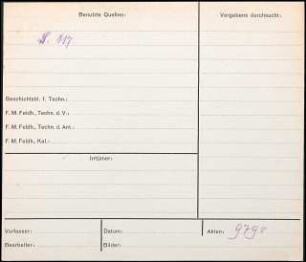 Benutzte Quellen:
Vergebens durchsucht:
S. 117
Geschichtsbl. f. Techn.:
F. M. Feldh., Techn. d. V.:
F. M. Feldh., Techn. d. Ant.:
F. M. Feldh., Kal.:
Irrtümer:
Verfasser:
Datum:
Akten: 9798
Bearbeiter:
Bilder: